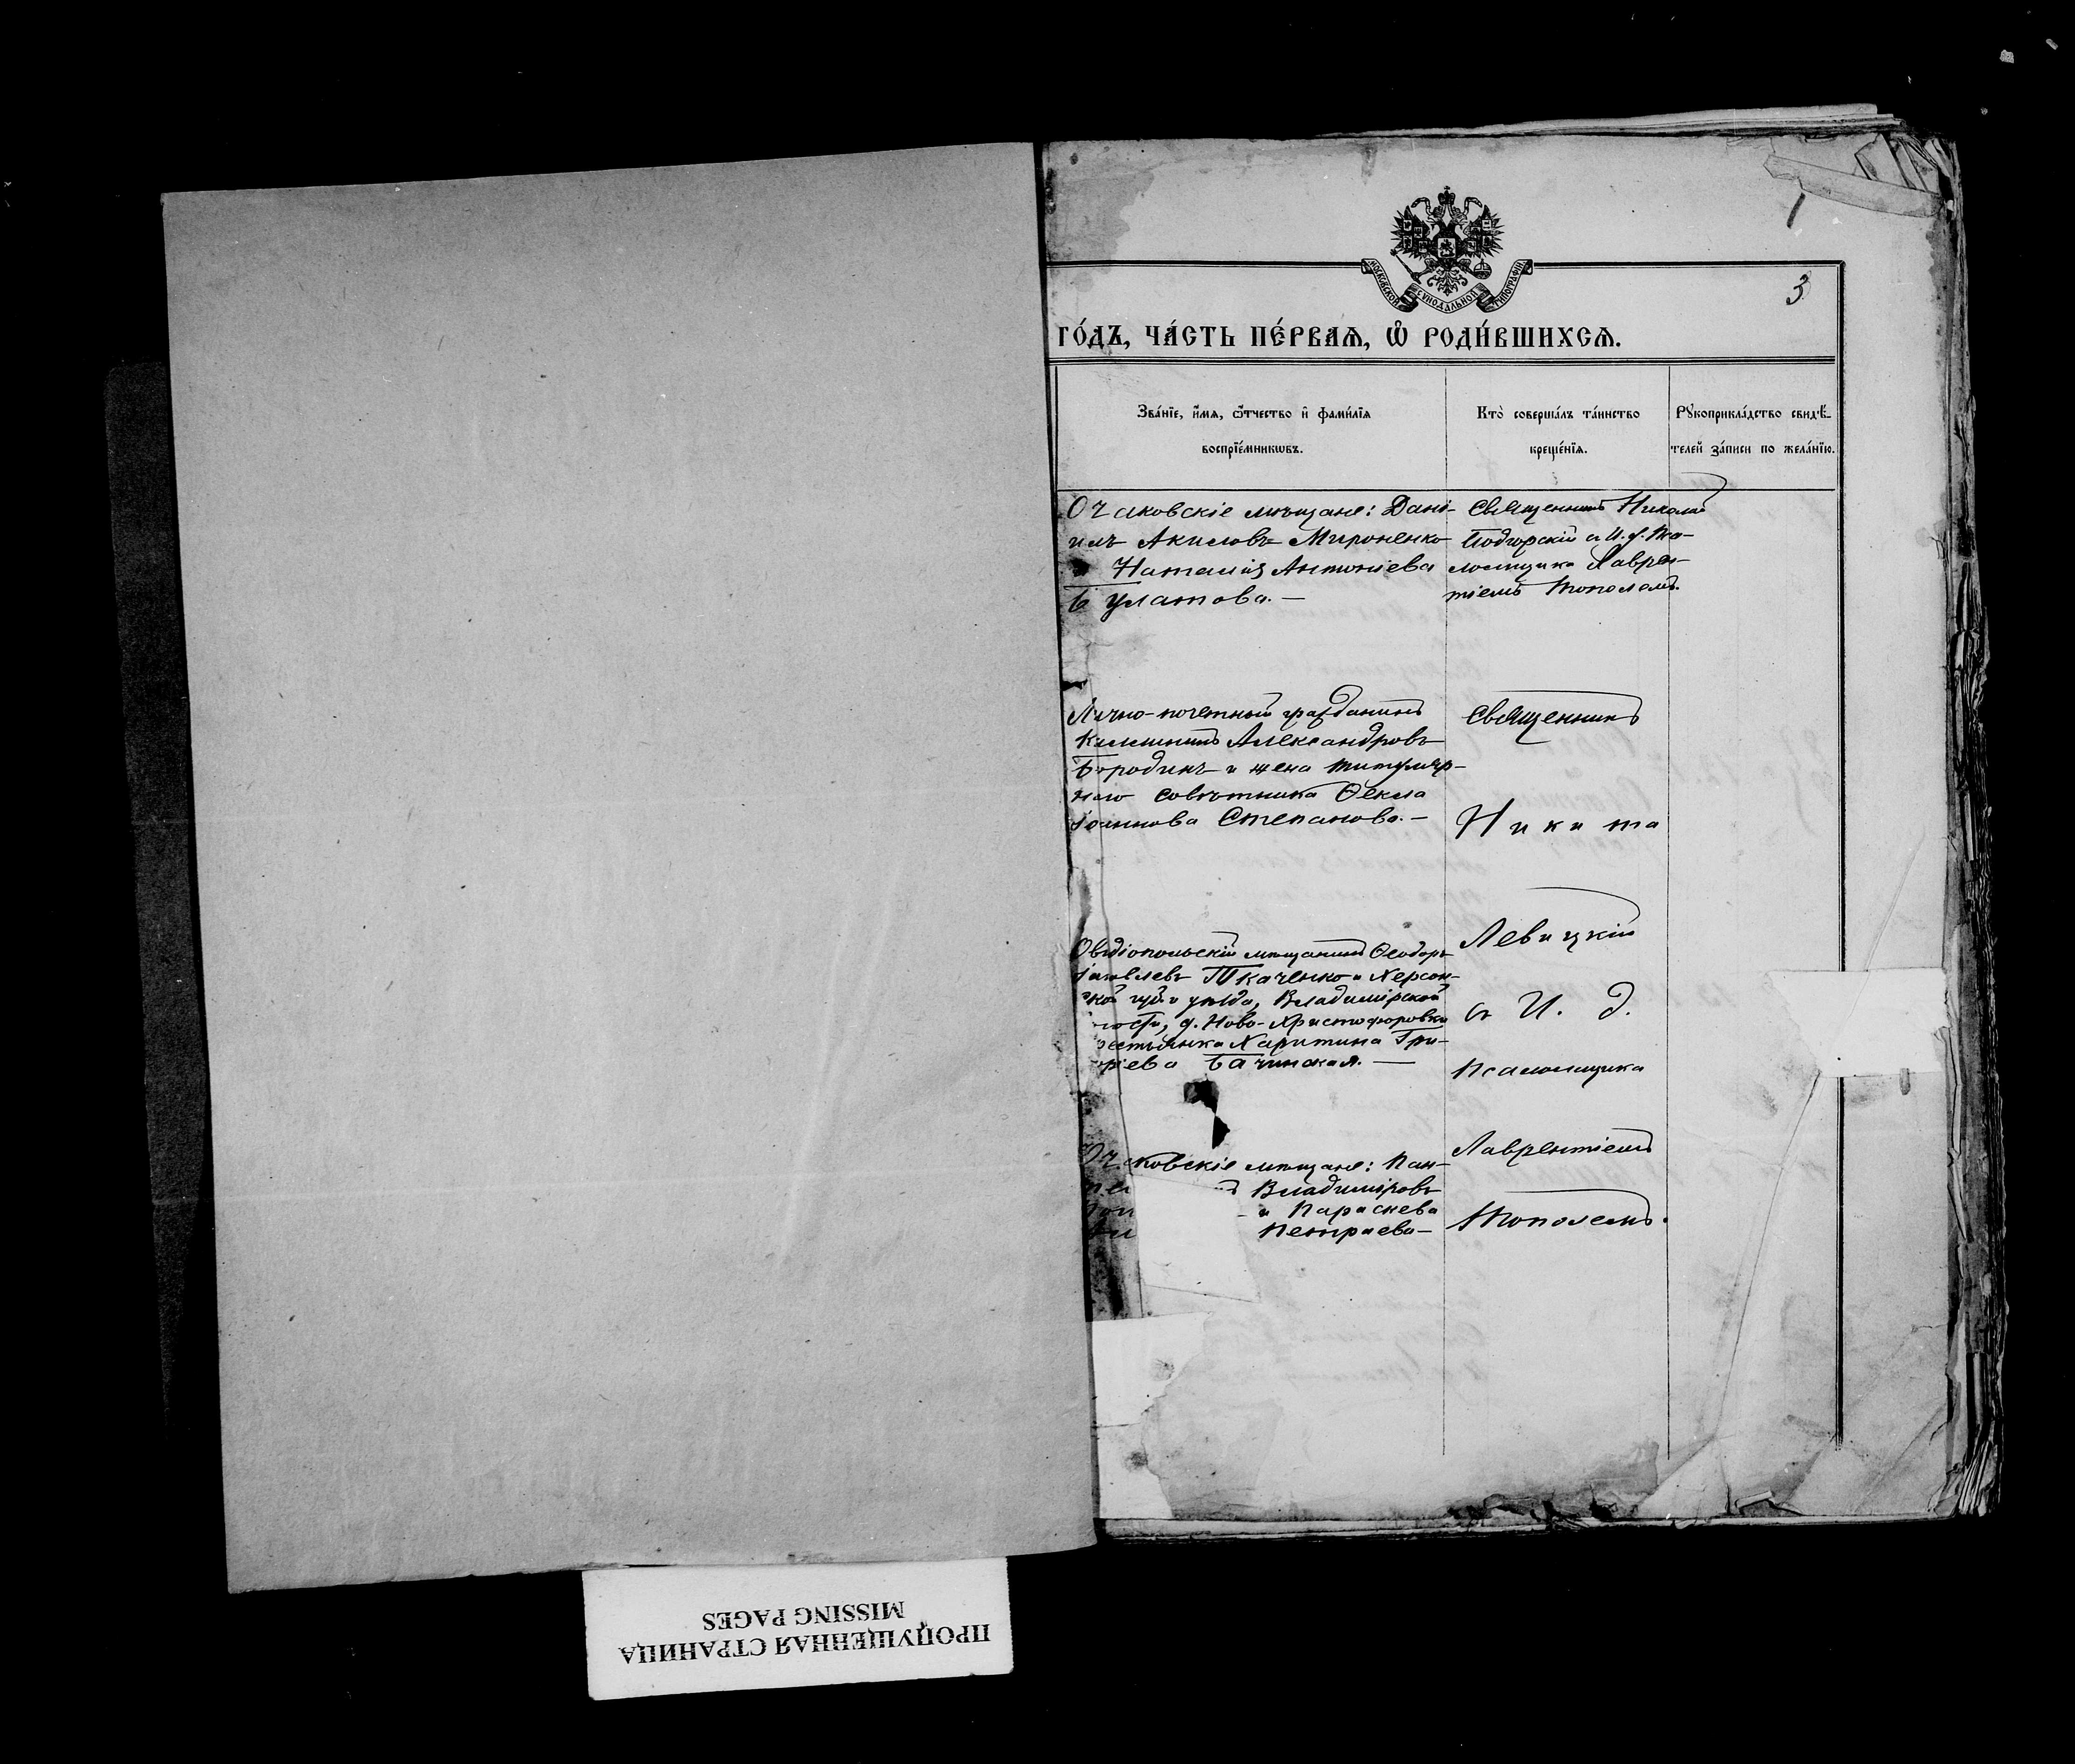 1
3
МОСКОВСКОЙ СѴНОДАЛЬНОЙ ТИПОГРАФІИ
ГО́ДЪ, ЧА́СТЬ ПЕ́РВАѦ, Ѡ҆ РОДИ́ВШИХСѦ.
Зва́нїе, и҆́мѧ, ѻ҆́тчество и҆ фами́лїѧ
воспрїе́мникѡвъ.
Кто̀ соверша́лъ та́инство
креще́нїѧ.
Рꙋкоприкла́дство свидѣ́-
телей за́писи по жела́нїю.
Очаковскіе мѣщане: Дані-
илъ Акиловъ Мироненко
Наталія Антоніева
Булатова. —
Священникъ Николай
Подгорскій съ И. д. Пса-
ломщика Лаврен-
тіемъ Тополемъ.
Лично-почетный гражданинъ
Александровъ
Бородинъ и жена титуляр-
наго совѣтника Ѳекла
Іоаннова Степанова. —
Священникъ
Никита
Левицкій
съ И. д.
Псаломщика
Лаврентіемъ
Тополемъ.
Овидіопольскій мѣщанинъ Ѳеодоръ
Іаковлевъ Ткаченко и Херсон-
ской губ. и уѣзда, Владимірской
волости, д. Ново-Христофоровки
крестьянка Харитина Гри-
горіева Бачинская. —
Очаковскіе мѣщане: Пан-
Владиміровъ
и Параскева
Петраева —
ПРОПУЩЕННАЯ СТРАНИЦА
MISSING PAGES